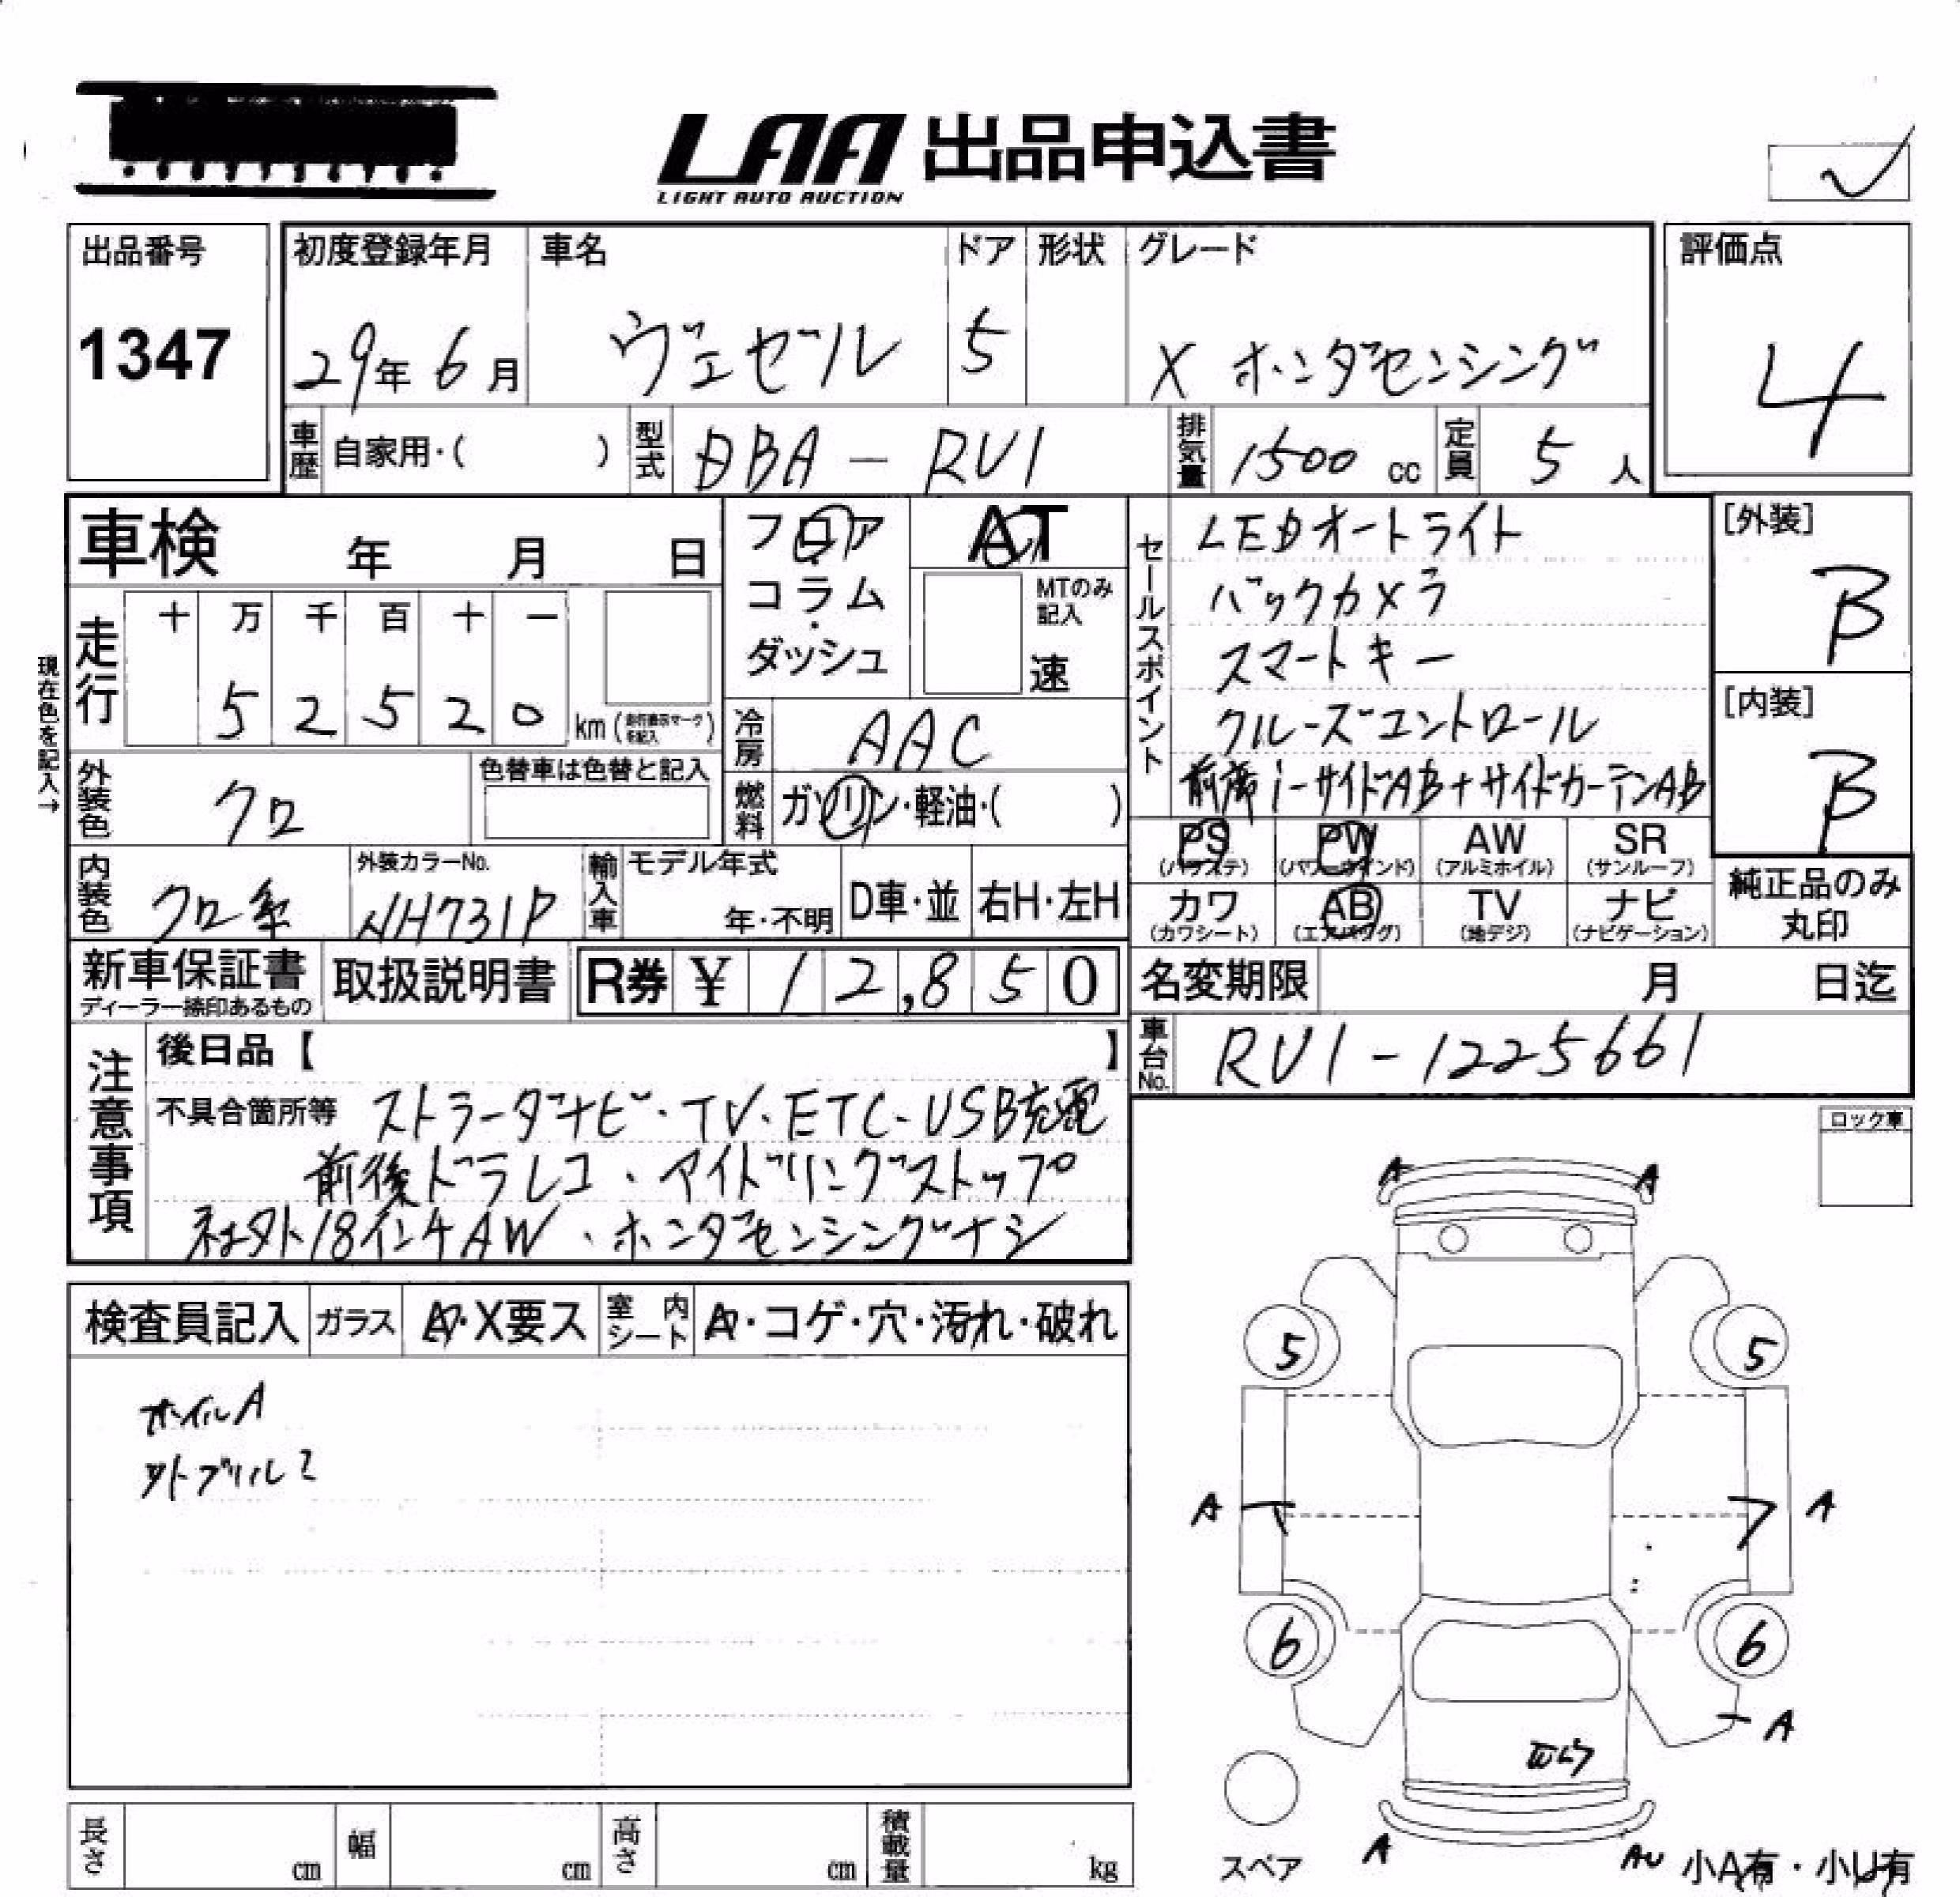 LAA 出品申込書
LIGHT AUTO AUCTION
出品番号
1347
初度登録年月
29年 6月
車名
ヴェゼル
ドア
5
形状
グレード
X ホンダセンシング
評価点
4
車歴
自家用・( )
型式
DBA - RU1
排気量
1500 cc
定員
5 人
車検 年 月 日
フロア・コラム・ダッシュ
AT
MTのみ記入
速
セールスポイント
LEDオートライト
バックカメラ
スマートキー
クルーズコントロール
前席i-サイドAB+サイドカーテンAB
[外装]
B
[内装]
B
現在色を記入→
走行
十 万 千 百 十 一
5 2 5 2 0 km
冷房
AAC
外装色
クロ
色替車は色替と記入
燃料
ガソリン・軽油・( )
PS (パワステ)
PW (パワーウインド)
AW (アルミホイル)
SR (サンルーフ)
カワ (カワシート)
AB (エアバッグ)
TV (地デジ)
ナビ (ナビゲーション)
純正品のみ丸印
内装色
クロ系
外装カラーNo.
NH731P
輸入車
モデル年式
年・不明
D車・並
右H・左H
新車保証書
ディーラー捺印あるもの
取扱説明書
R券 ¥ 12,850
名変期限 月 日迄
車台No.
RU1-1225661
注意事項
後日品【 】
不具合箇所等 ストラーダナビ・TV・ETC・USB充電
前後ドラレコ、アイドリングストップ
社外18インチAW、ホンダセンシングナシ
ロック車
検査員記入
ガラス
A・X要ス
室内シート
A・コゲ・穴・汚れ・破れ
ホイルA
A A
5 5
A A
6 6
A
A AU
スペア
小A有・小U有
長さ cm
幅 cm
高さ cm
積載量 kg